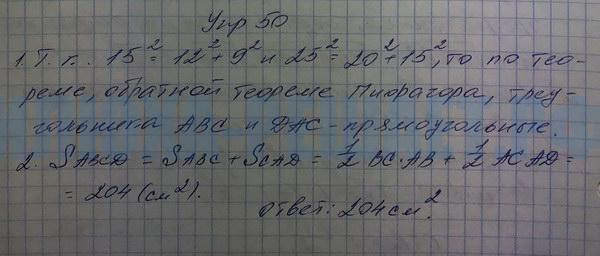 Упр 50
1. Т. к. 15² = 12² + 9² и 25² = 20² + 15², то по тео-
реме, обратной теореме Пифагора, треу-
гольника ABC и DAC - прямоугольные.
2. SABCD = SABC + SCAD = 1/2 BC · AB + 1/2 AC AD =
= 204 (см²).
Ответ: 204 см².